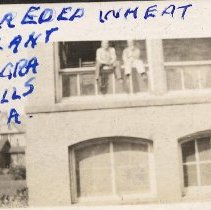 REDED WHEAT
LANT
GRA
LLS
A.